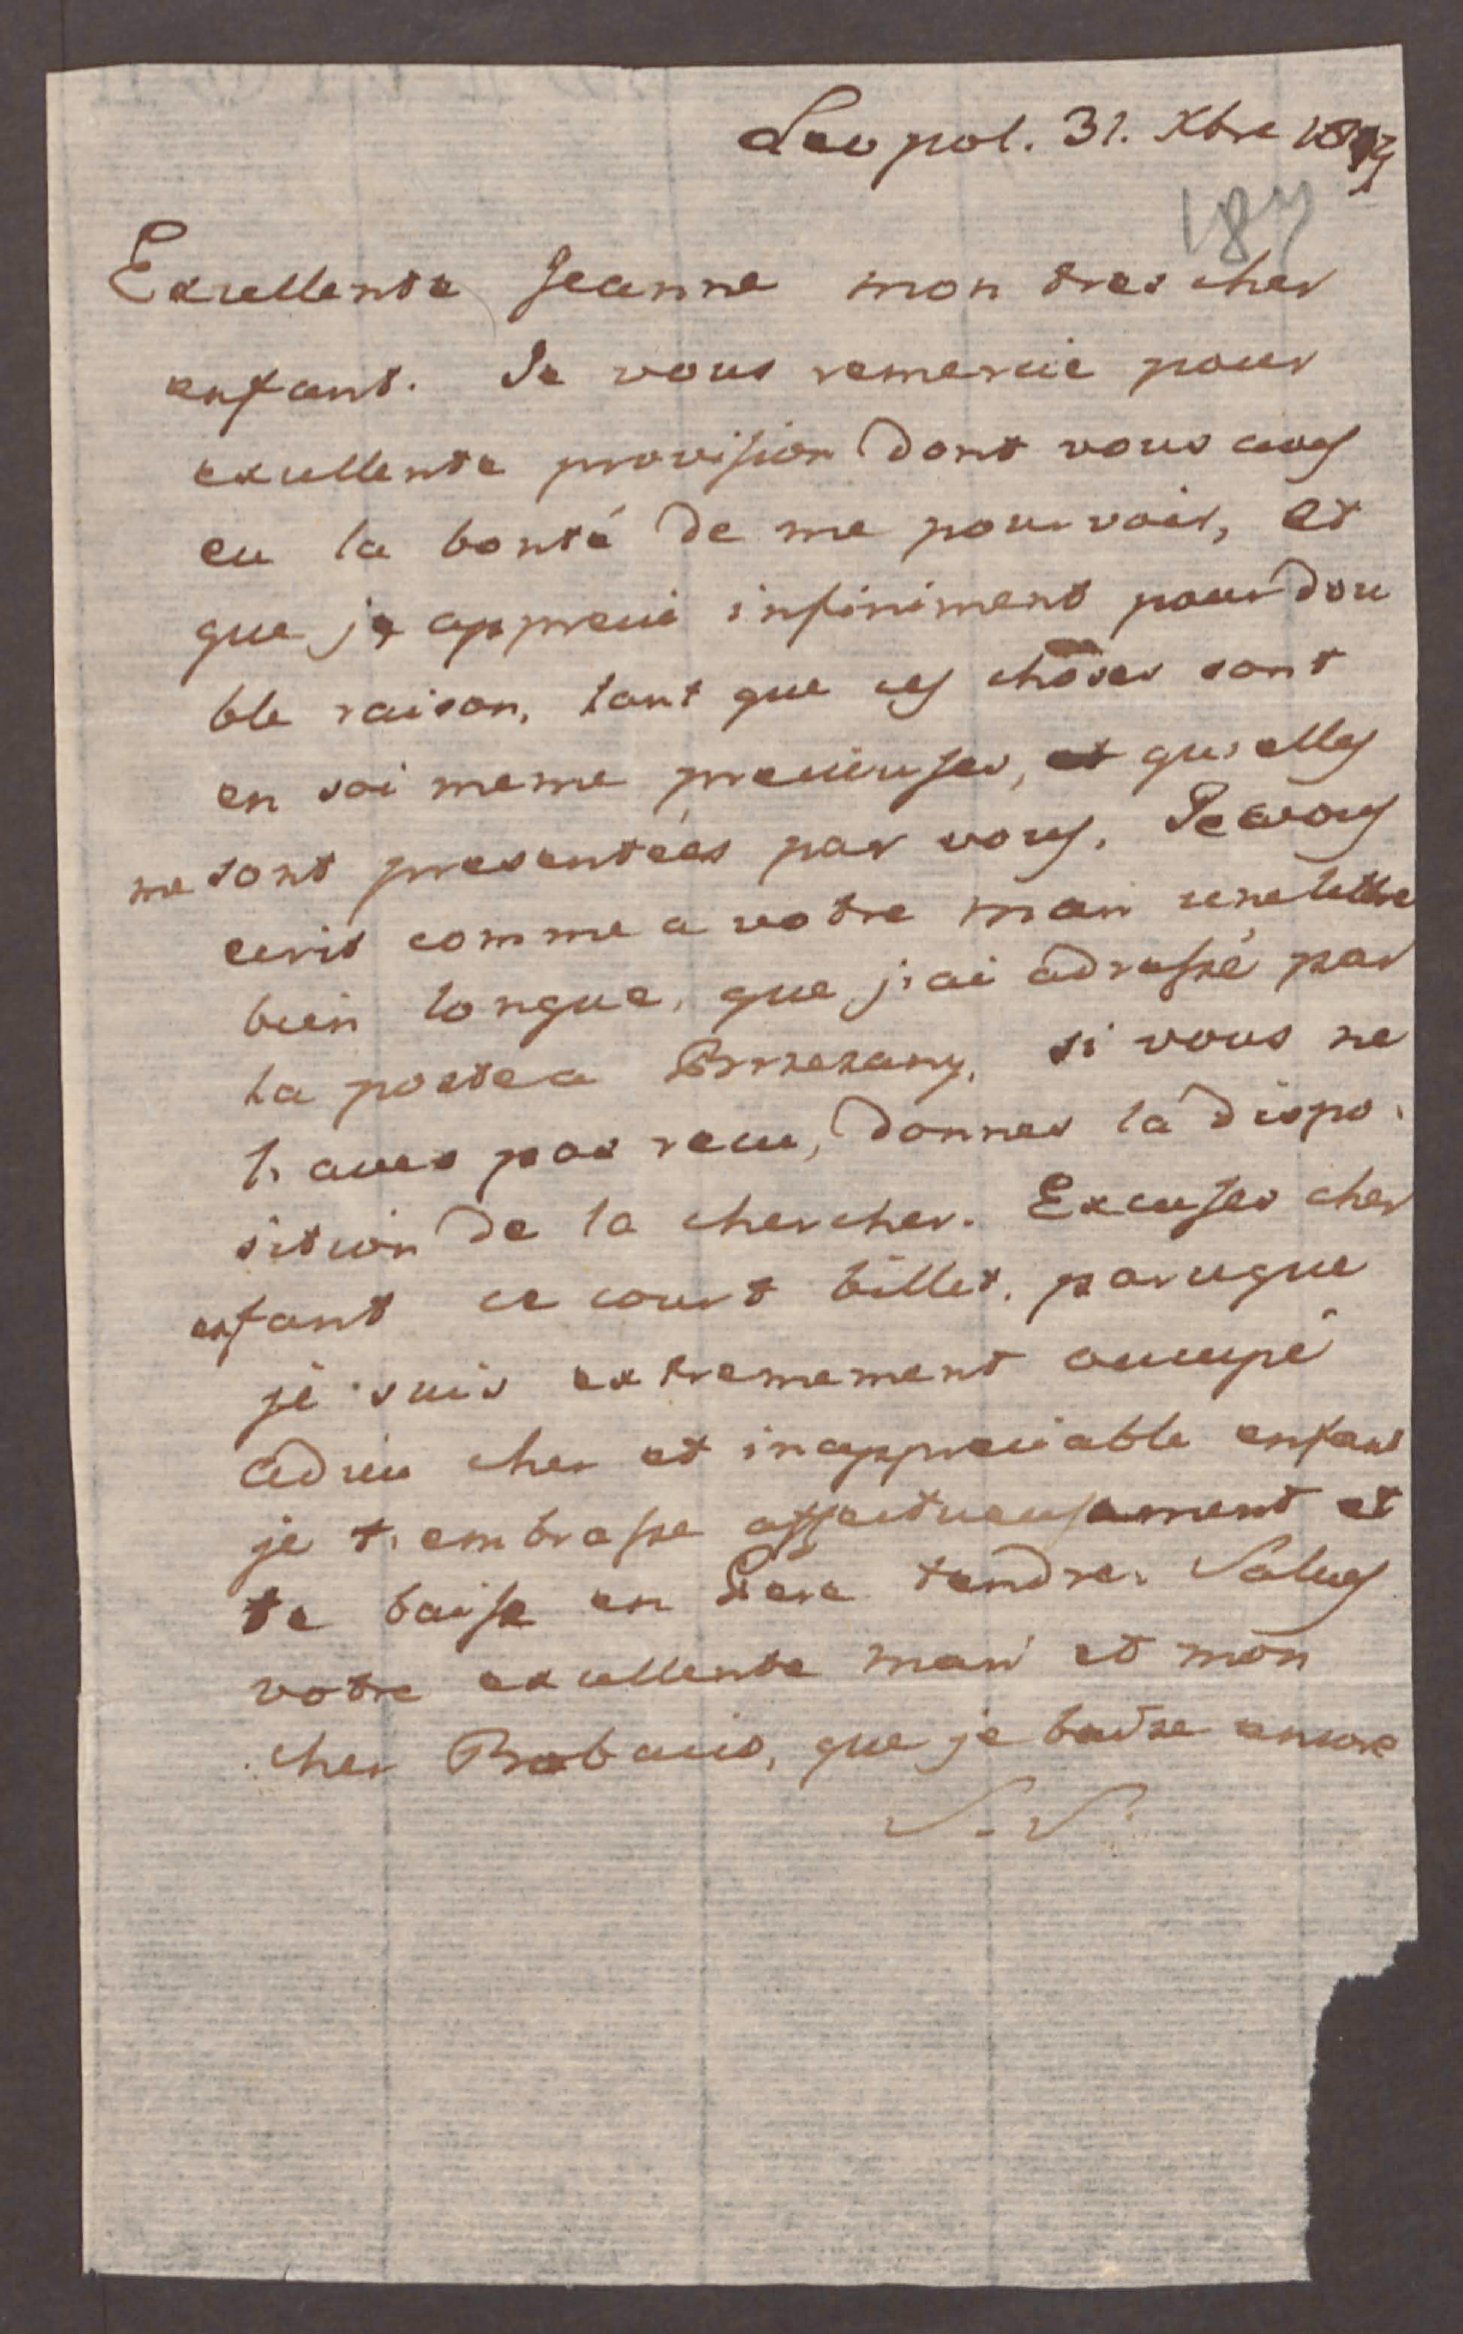 Leopol. 31. Xbre
187
Excellente Jeanne mon tres cher
enfant. Je vous remercie pour
excellente provision dont vous aves
eu la bonté de me pourvoir, et
que je apprecie infiniment pour dou
ble raison, tant que ces choses sont
en soi meme precieuses, et qu'elles
me sont presentées par vous. Je vous
ecris comme a votre mari une lettre
bien longue, que j'ai adressé par
la poste a Brzezany, si vous ne
l'aves pas recu, donnes la dispo
sition de la chercher. Excuses cher
enfant ce court billet, parceque
je suis extremement occupé
adieu cher et inappreciable enfant
je t'embrasse affectueusement et
te baise en Pere tendre. Salues
votre excellente mari et mon
cher que je baise encore